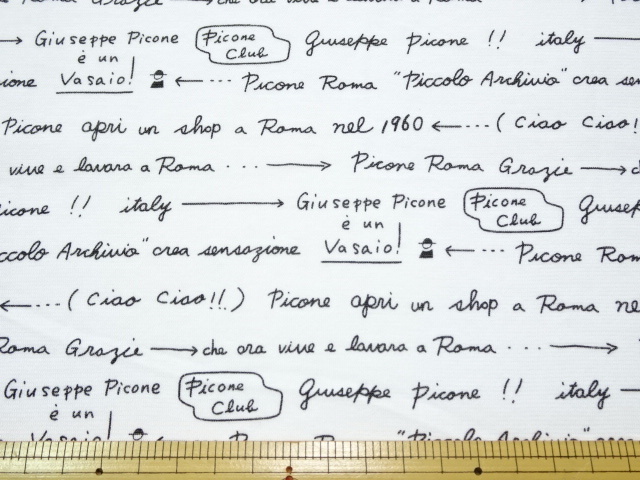 Picone Roma Grazie che ora vive e lavara a Roma
Giuseppe Picone Picone Club Giuseppe Picone !! italy
è un
ione Vasaio! Picone Roma "Piccolo Archivio" crea sen
Picone apri un shop a Roma nel 1960 ( Ciao Ciao!
vive e lavara a Roma ... Picone Roma Grazie c
icone !! italy Giuseppe Picone Picone Club Giusep
è un
ccolo Archivio" crea sensazione Vasaio! Picone Rom
( Ciao Ciao!! ) Picone apri un shop a Roma ne
Roma Grazie che ora vive e lavara a Roma ...
Giuseppe Picone Picone Club Giuseppe Picone !! italy
è un
Vasaio!